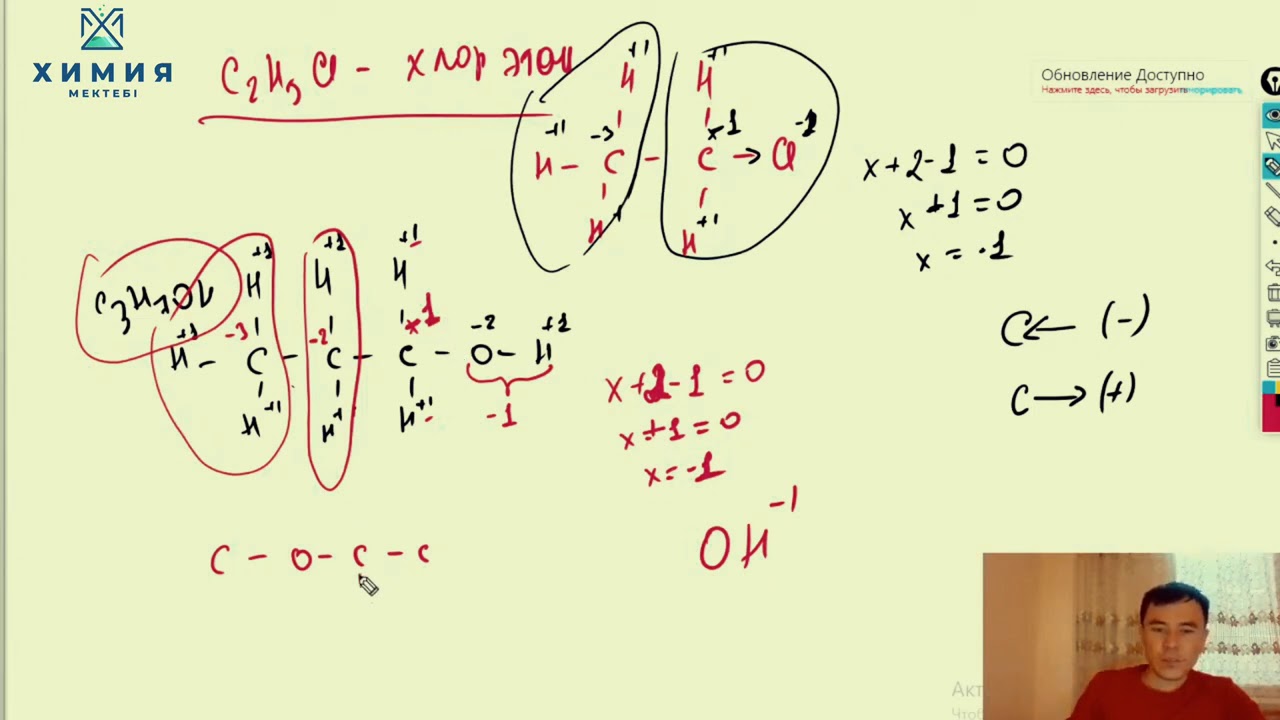 ХИМИЯ
МЕКТЕБІ
C₂H₅Cl - хлор этан
Обновление Доступно
Нажмите здесь, чтобы загрузить
игнорировать
+1 +1
H H
+1 -3 x-1 -1
H - C - C → Cl
H+1 H+1
x+2-1=0
x+1=0
x = -1
C₃H₇OH
+1 +1 +1
H H H
+1 -3 -2 x-1 -2 +1
H - C - C - C - O - H
H+1 H+1 H+1 -1
x+2-1=0
x+1=0
x=-1
C← (-)
C→(+)
OH-1
C - O - C - C